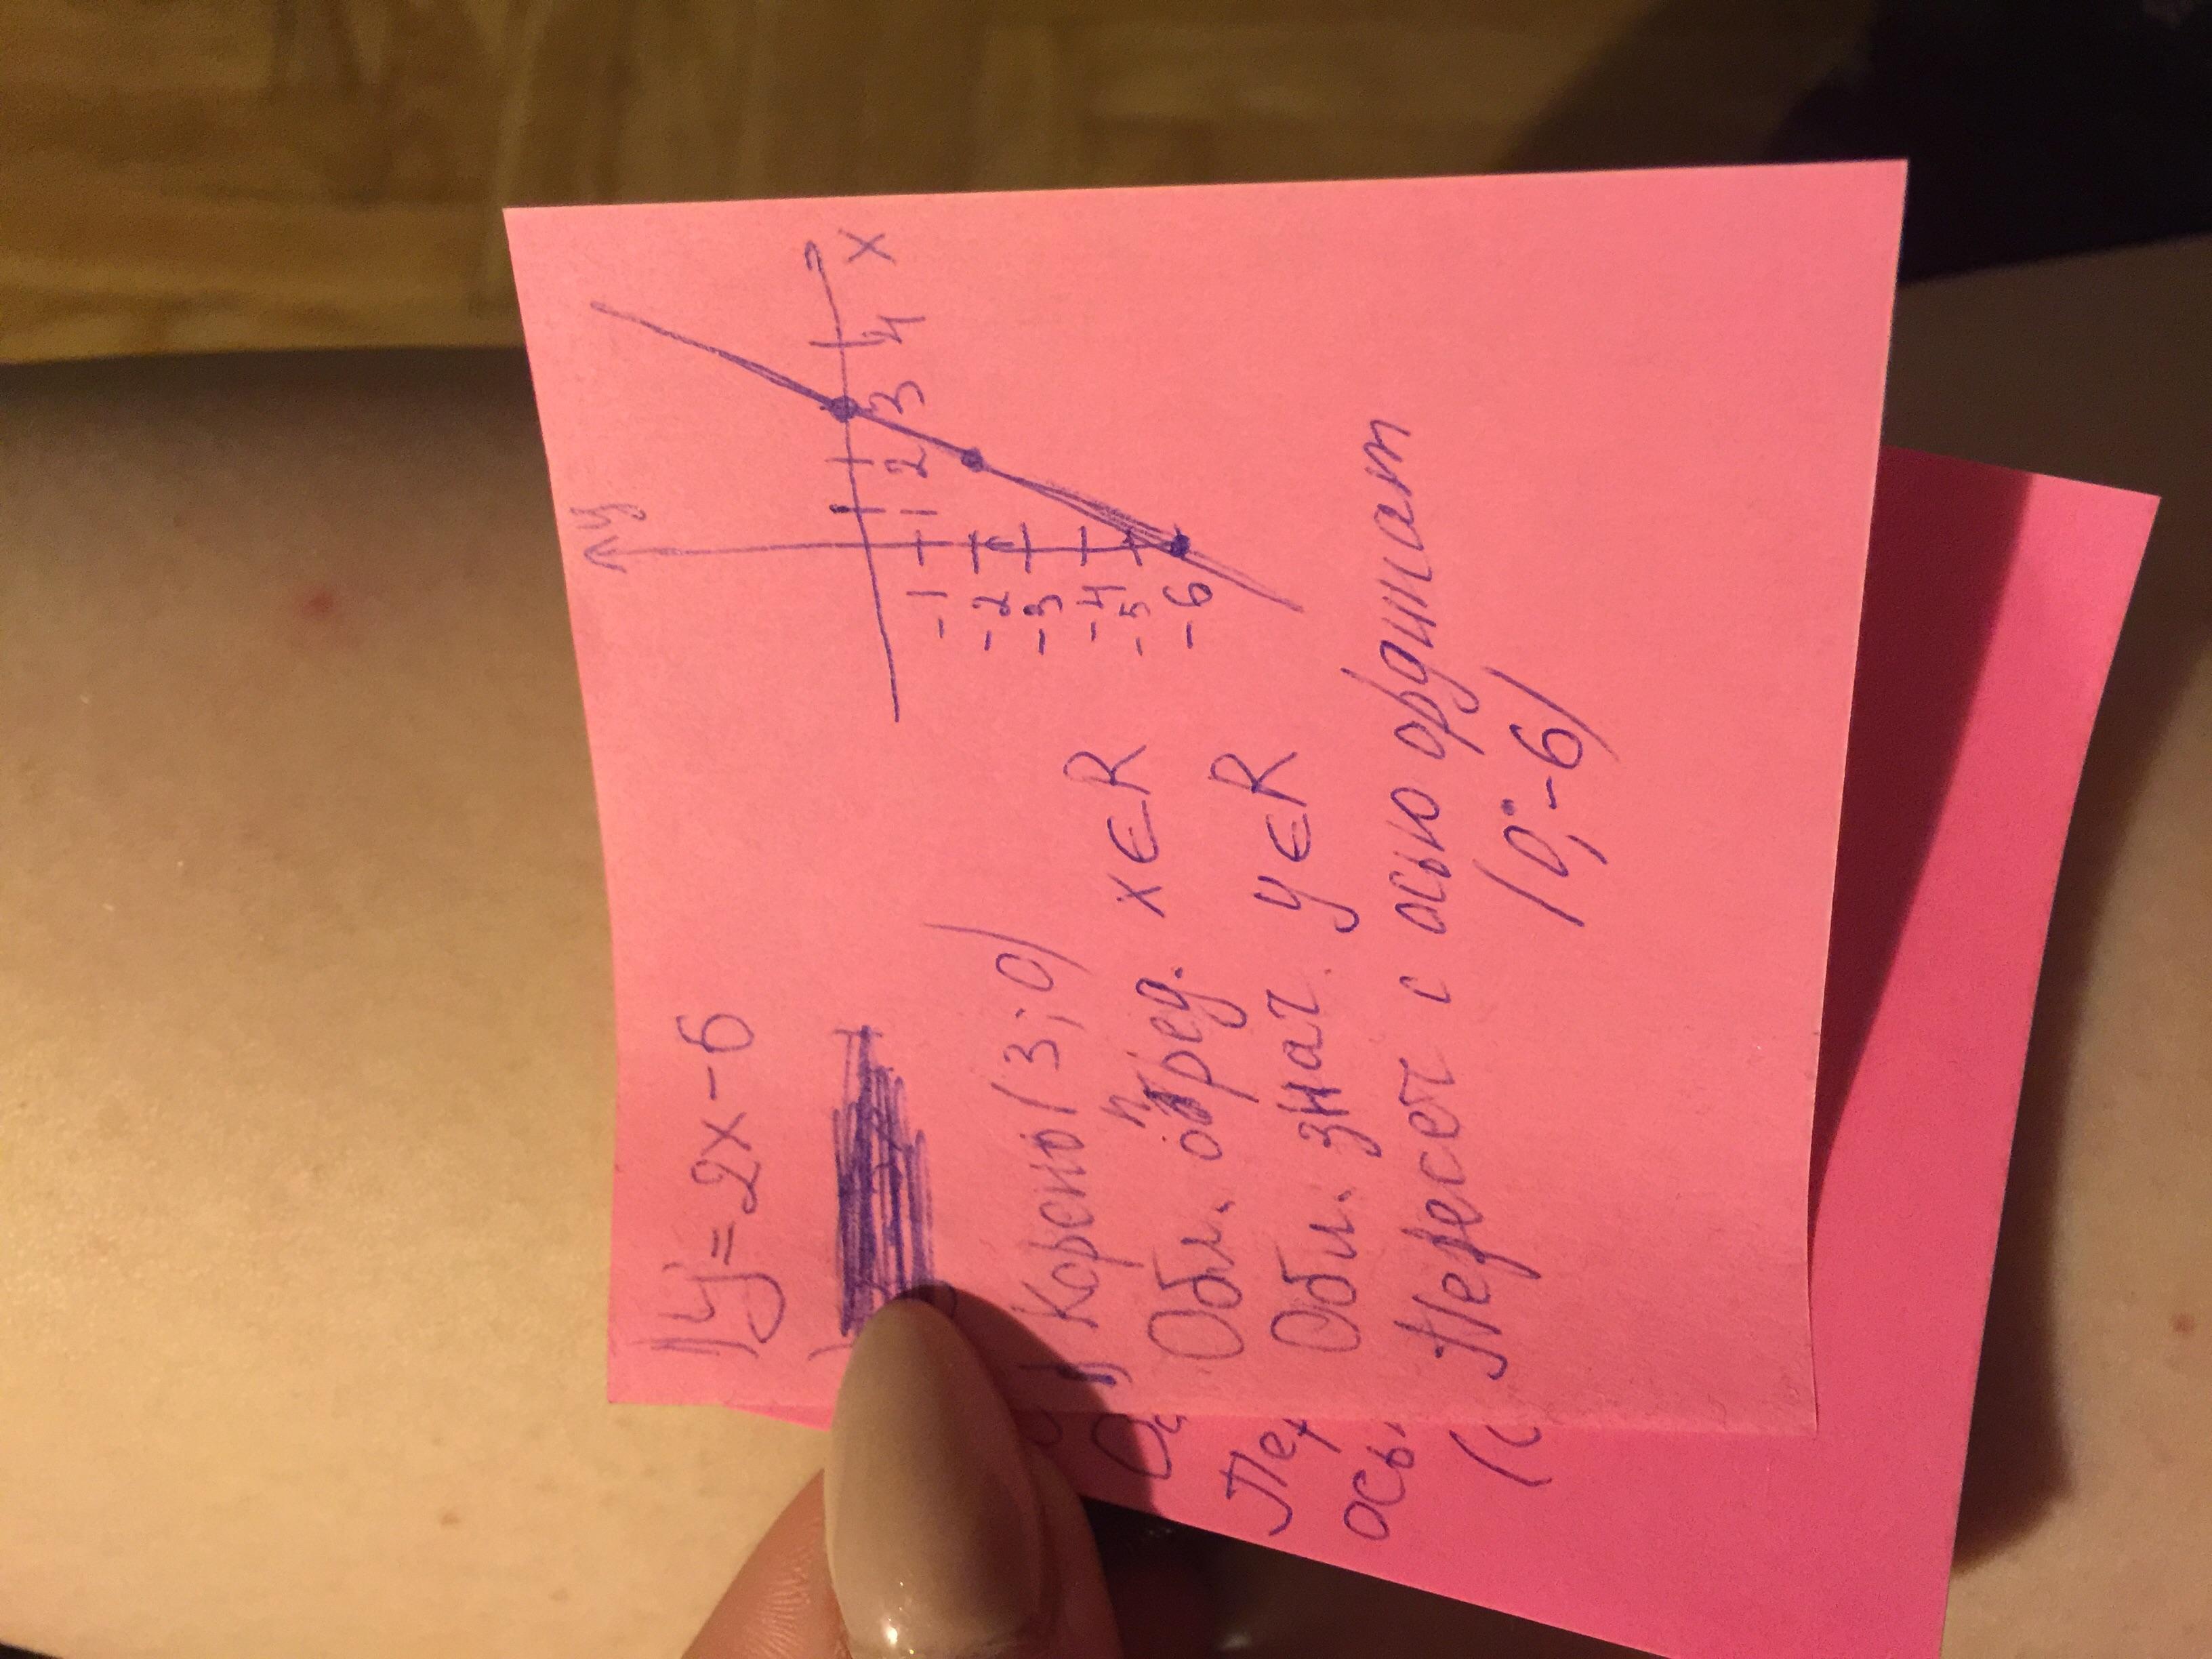 y=2x-6
Корень (3;0)
Обл. опред. x∈R
Обл. знач. y∈R
Пересеч с осью ординат
(0;-6)
y
x
1 2 3 4
-1
-2
-3
-4
-5
-6
Пер
осы